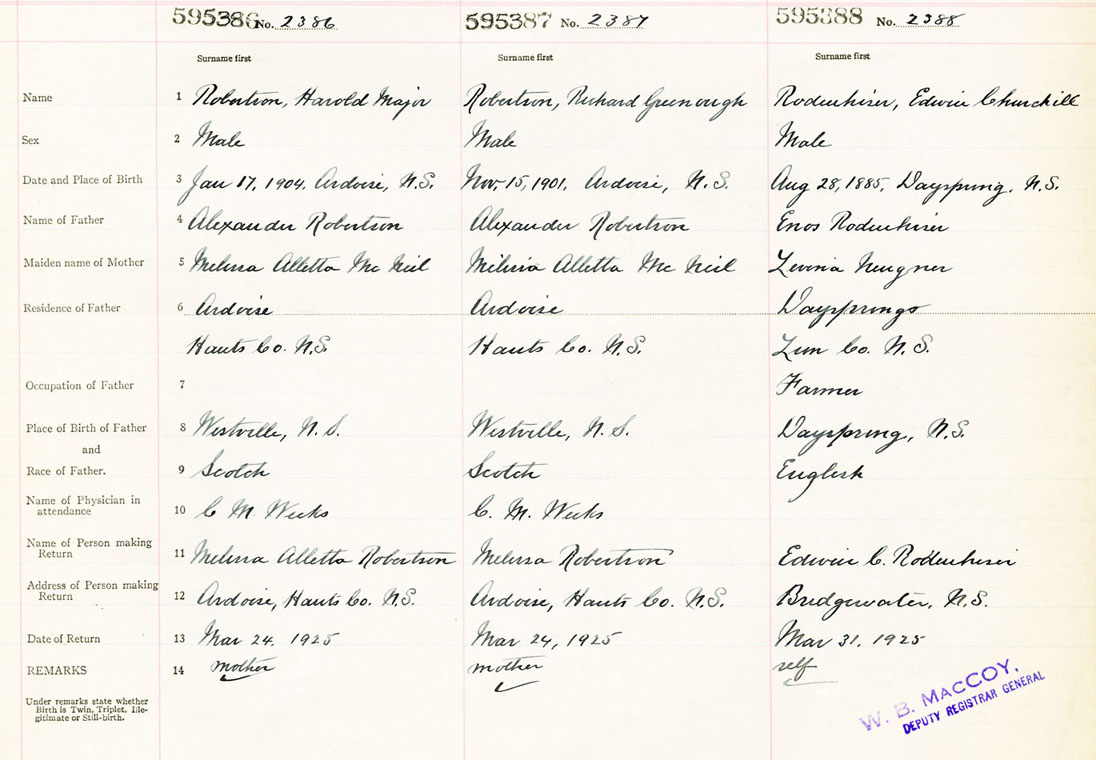 595386 No. 2386 595387 No. 2387 595388 No. 2388
Surname first Surname first Surname first
Name 1 Robertson, Harold Major Robertson, Richard Greenough Rodenhiser, Edwin Churchill
Sex 2 Male Male Male
Date and Place of Birth 3 Jan 17, 1904. Ardoise, N.S. Nov. 15, 1901, Ardoise, N.S. Aug 28, 1885, Dayspring, N.S.
Name of Father 4 Alexander Robertson Alexander Robertson Enos Rodenhiser
Maiden name of Mother 5 Melissa Alletta McNeil Milissia Alletta McNeil Levinia
Residence of Father 6 Ardoise Ardoise Dayspring
Hants Co. N.S. Hants Co. N.S. Lun Co. N.S.
Occupation of Father 7 Farmer
Place of Birth of Father 8 Westville, N.S. Westville, N.S. Dayspring, N.S.
and
Race of Father. 9 Scotch Scotch English
Name of Physician in
attendance 10 C M Weeks C. M. Weeks
Name of Person making
Return 11 Melissa Alletta Robertson Melissa Robertson Edwin C. Rodenhiser
Address of Person making
Return 12 Ardoise, Hants Co. N.S. Ardoise, Hants Co. N.S. Bridgewater, N.S.
Date of Return 13 Mar 24, 1925 Mar 24, 1925 Mar 31, 1925
REMARKS 14 mother mother self
Under remarks state whether
Birth is Twin, Triplet, Ille-
gitimate or Still-birth.
W. B. MacCOY,
DEPUTY REGISTRAR GENERAL